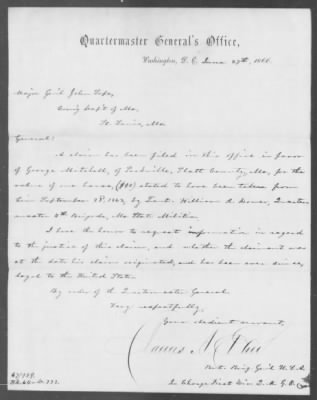 Quartermaster General's Office,
Washington, D. C. June 27th, 1866.
Major Genl John Pope,
Comg Dep't of Mo,
St. Louis, Mo
General:
A claim has been filed in this office in favor
of George Mitchell, of Parkville, Platt County, Mo, for the
value of one horse, ($90) stated to have been taken from
him September 18, 1862, by Lieut. William A. Quarter-
master 4th Brigade, Mo State Militia.
I have the honor to request information in regard
to the justice of this claim, and whether the claimant was
at the date his claim originated, and has ever since been
loyal to the United States.
By order of the Quartermaster General
Very respectfully,
Your obedient servant,
James A. Ekin
Bvt. Brig Genl U.S.A.
In Charge First Div. Q.M.G.O.